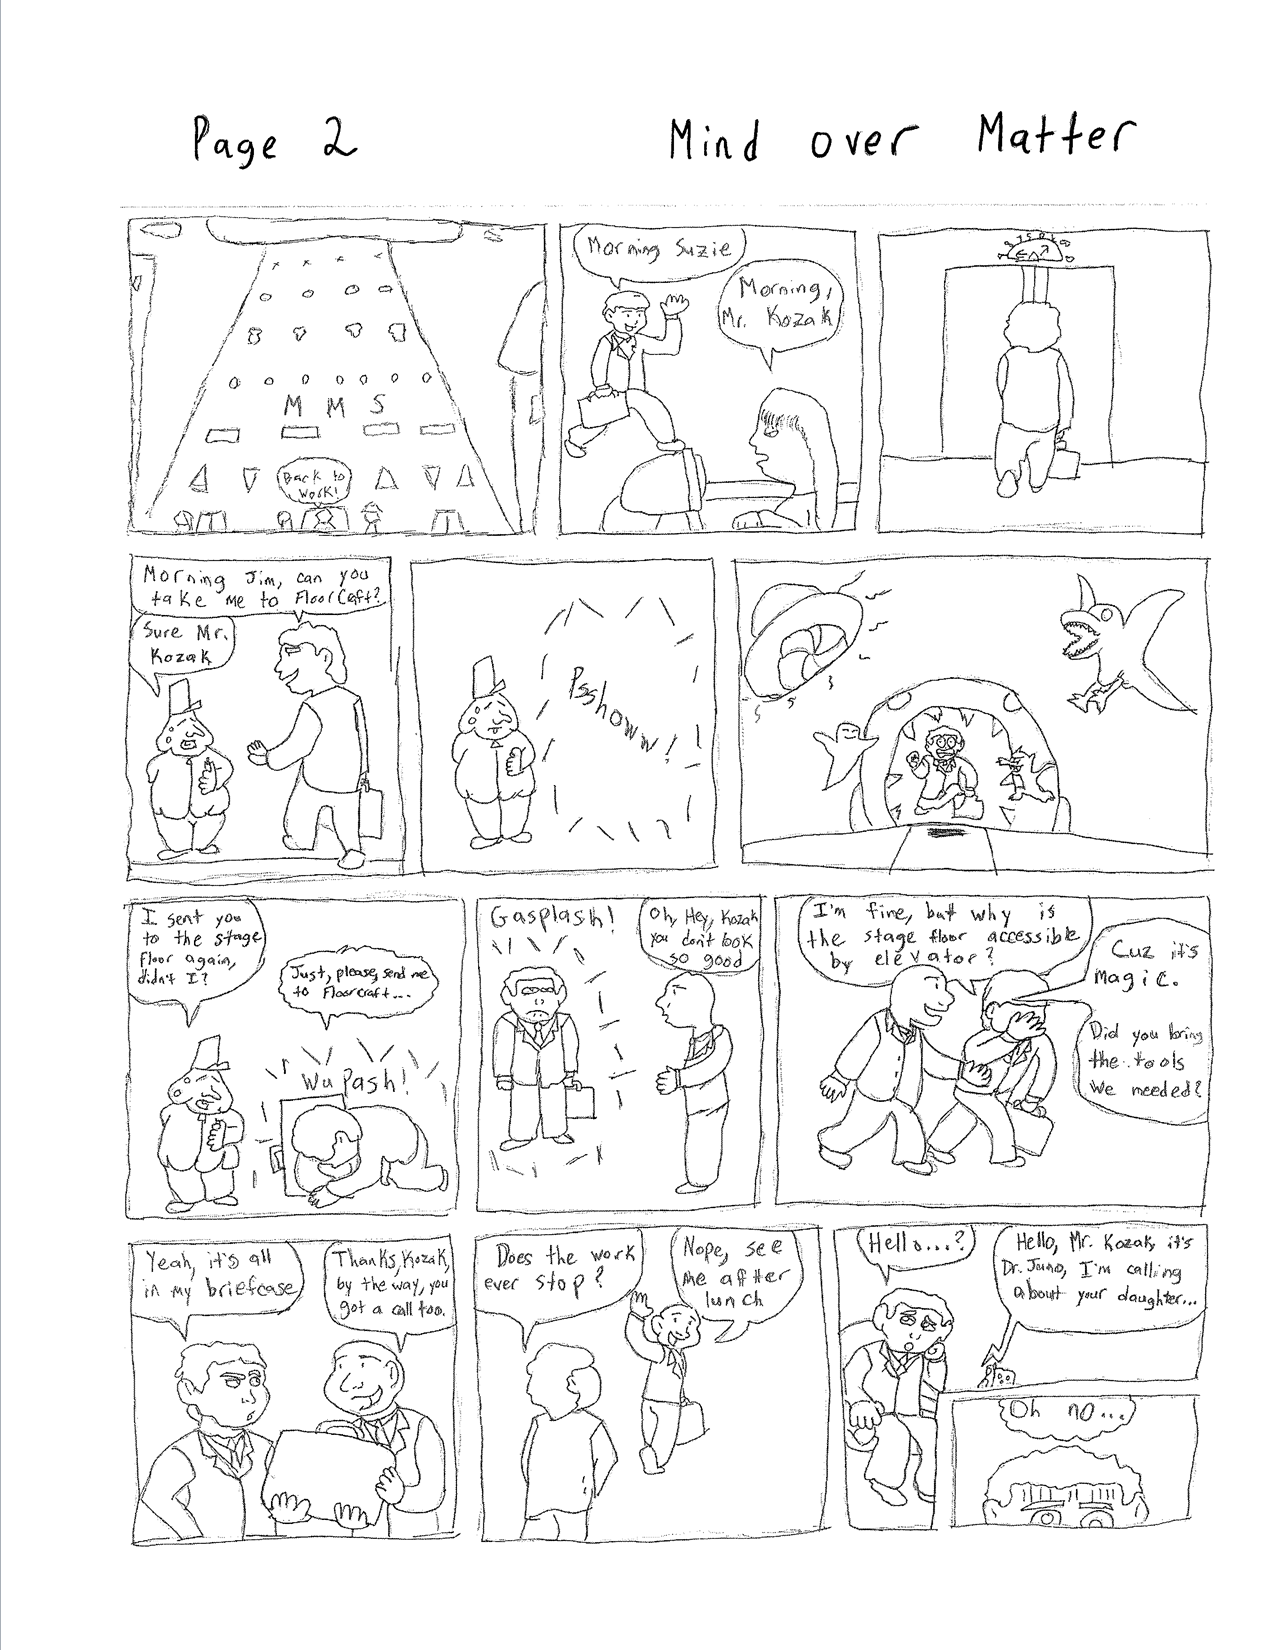 Page 2
Mind over Matter
M M S
Back to
Work!
Morning Suzie
Morning,
Mr. Kozak
Morning Jim, can you
take me to FloorCraft?
Sure Mr.
Kozak
Psshoww!
I sent you
to the stage
floor again,
didn't I?
Just, please, send me
to Floorcraft...
Wupash!
Gasplash!
Oh, Hey, Kozak
you don't look
so good
I'm fine, but why is
the stage floor accessible
by elevator?
Cuz it's
magic.
Did you bring
the tools
we needed?
Yeah, it's all
in my briefcase
Thanks, Kozak,
by the way, you
got a call too.
Does the work
ever stop?
Nope, see
me after
lunch
Hello...?
Hello, Mr. Kozak, it's
Dr. Juno, I'm calling
about your daughter...
Oh no...